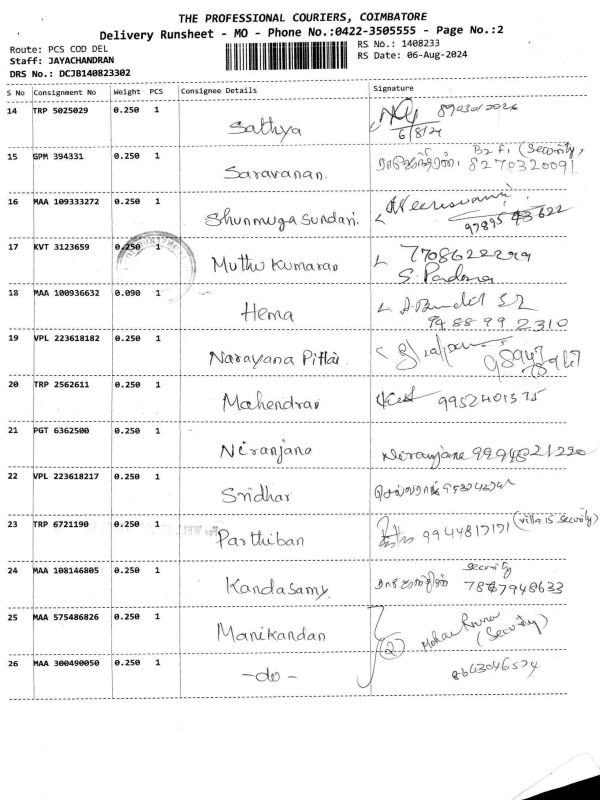 THE PROFESSIONAL COURIERS, COIMBATORE
Delivery Runsheet - MO - Phone No.:0422-3505555 - Page No.:2
Route: PCS COD DEL
RS No.: 1408233
Staff: JAYACHANDRAN
RS Date: 06-Aug-2024
DRS No.: DCJB140823302
S No Consignment No Weight PCS Consignee Details Signature
14 TRP 5025029 0.250 1 Sathya
6/8/24
15 GPM 394331 0.250 1 Saravanan. (Security,
8270320091
16 MAA 109333272 0.250 1 Shunmuga Sundari.
97895 43622
17 KVT 3123659 0.250 1 Muthu Kumaran 7708622229
S. Padma
18 MAA 100936632 0.090 1 Hema
94 88 99 2310
19 VPL 223618182 0.250 1 Narayana Pillai
20 TRP 2562611 0.250 1 Mahendran 9952401575
21 PGT 6362500 0.250 1 Niranjana Niranjana 9994821220
22 VPL 223618217 0.250 1 Sridhar
23 TRP 6721190 0.250 1 Parthiban 9944817171 (villa is security)
24 MAA 108146805 0.250 1 Kandasamy. Security
7867948633
25 MAA 575486826 0.250 1 Manikandan (2) Mohan (Security)
26 MAA 300490050 0.250 1 -do- 8663046574